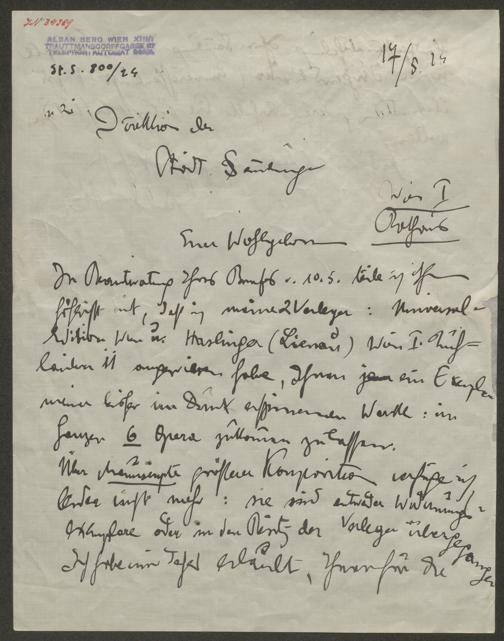 JN 39369
ALBAN BERG WIEN XIII/1
TRAUTTMANSDORFFGASSE 27
TELEPHON AUTOMAT
St. S. 800/24
17/5. 24
Direktion der
Städt Sammlungen
Wien I
Rathaus
Euer Wohlgeboren
In Beantwortung Ihres Briefs v. 10.5. teile ich Ihnen
höflichst mit, daß ich meine 2 Verleger: Universal-
Edition Wien u. Haslinger (Lienau) Wien I. Tuch-
lauben 11 angewiesen habe, Ihnen je ein Exemplar
meiner bisher im Druck erschienenen Werke: im
Ganzen 6 Opera zukommen zu lassen.
Über Manuskripte größerer Komposition verfüge ich
leider nicht mehr: sie sind entweder Widmungs-
exemplare oder in den Besitz der Verleger übergegangen
Ich habe mir daher erlaubt, Ihnen für die